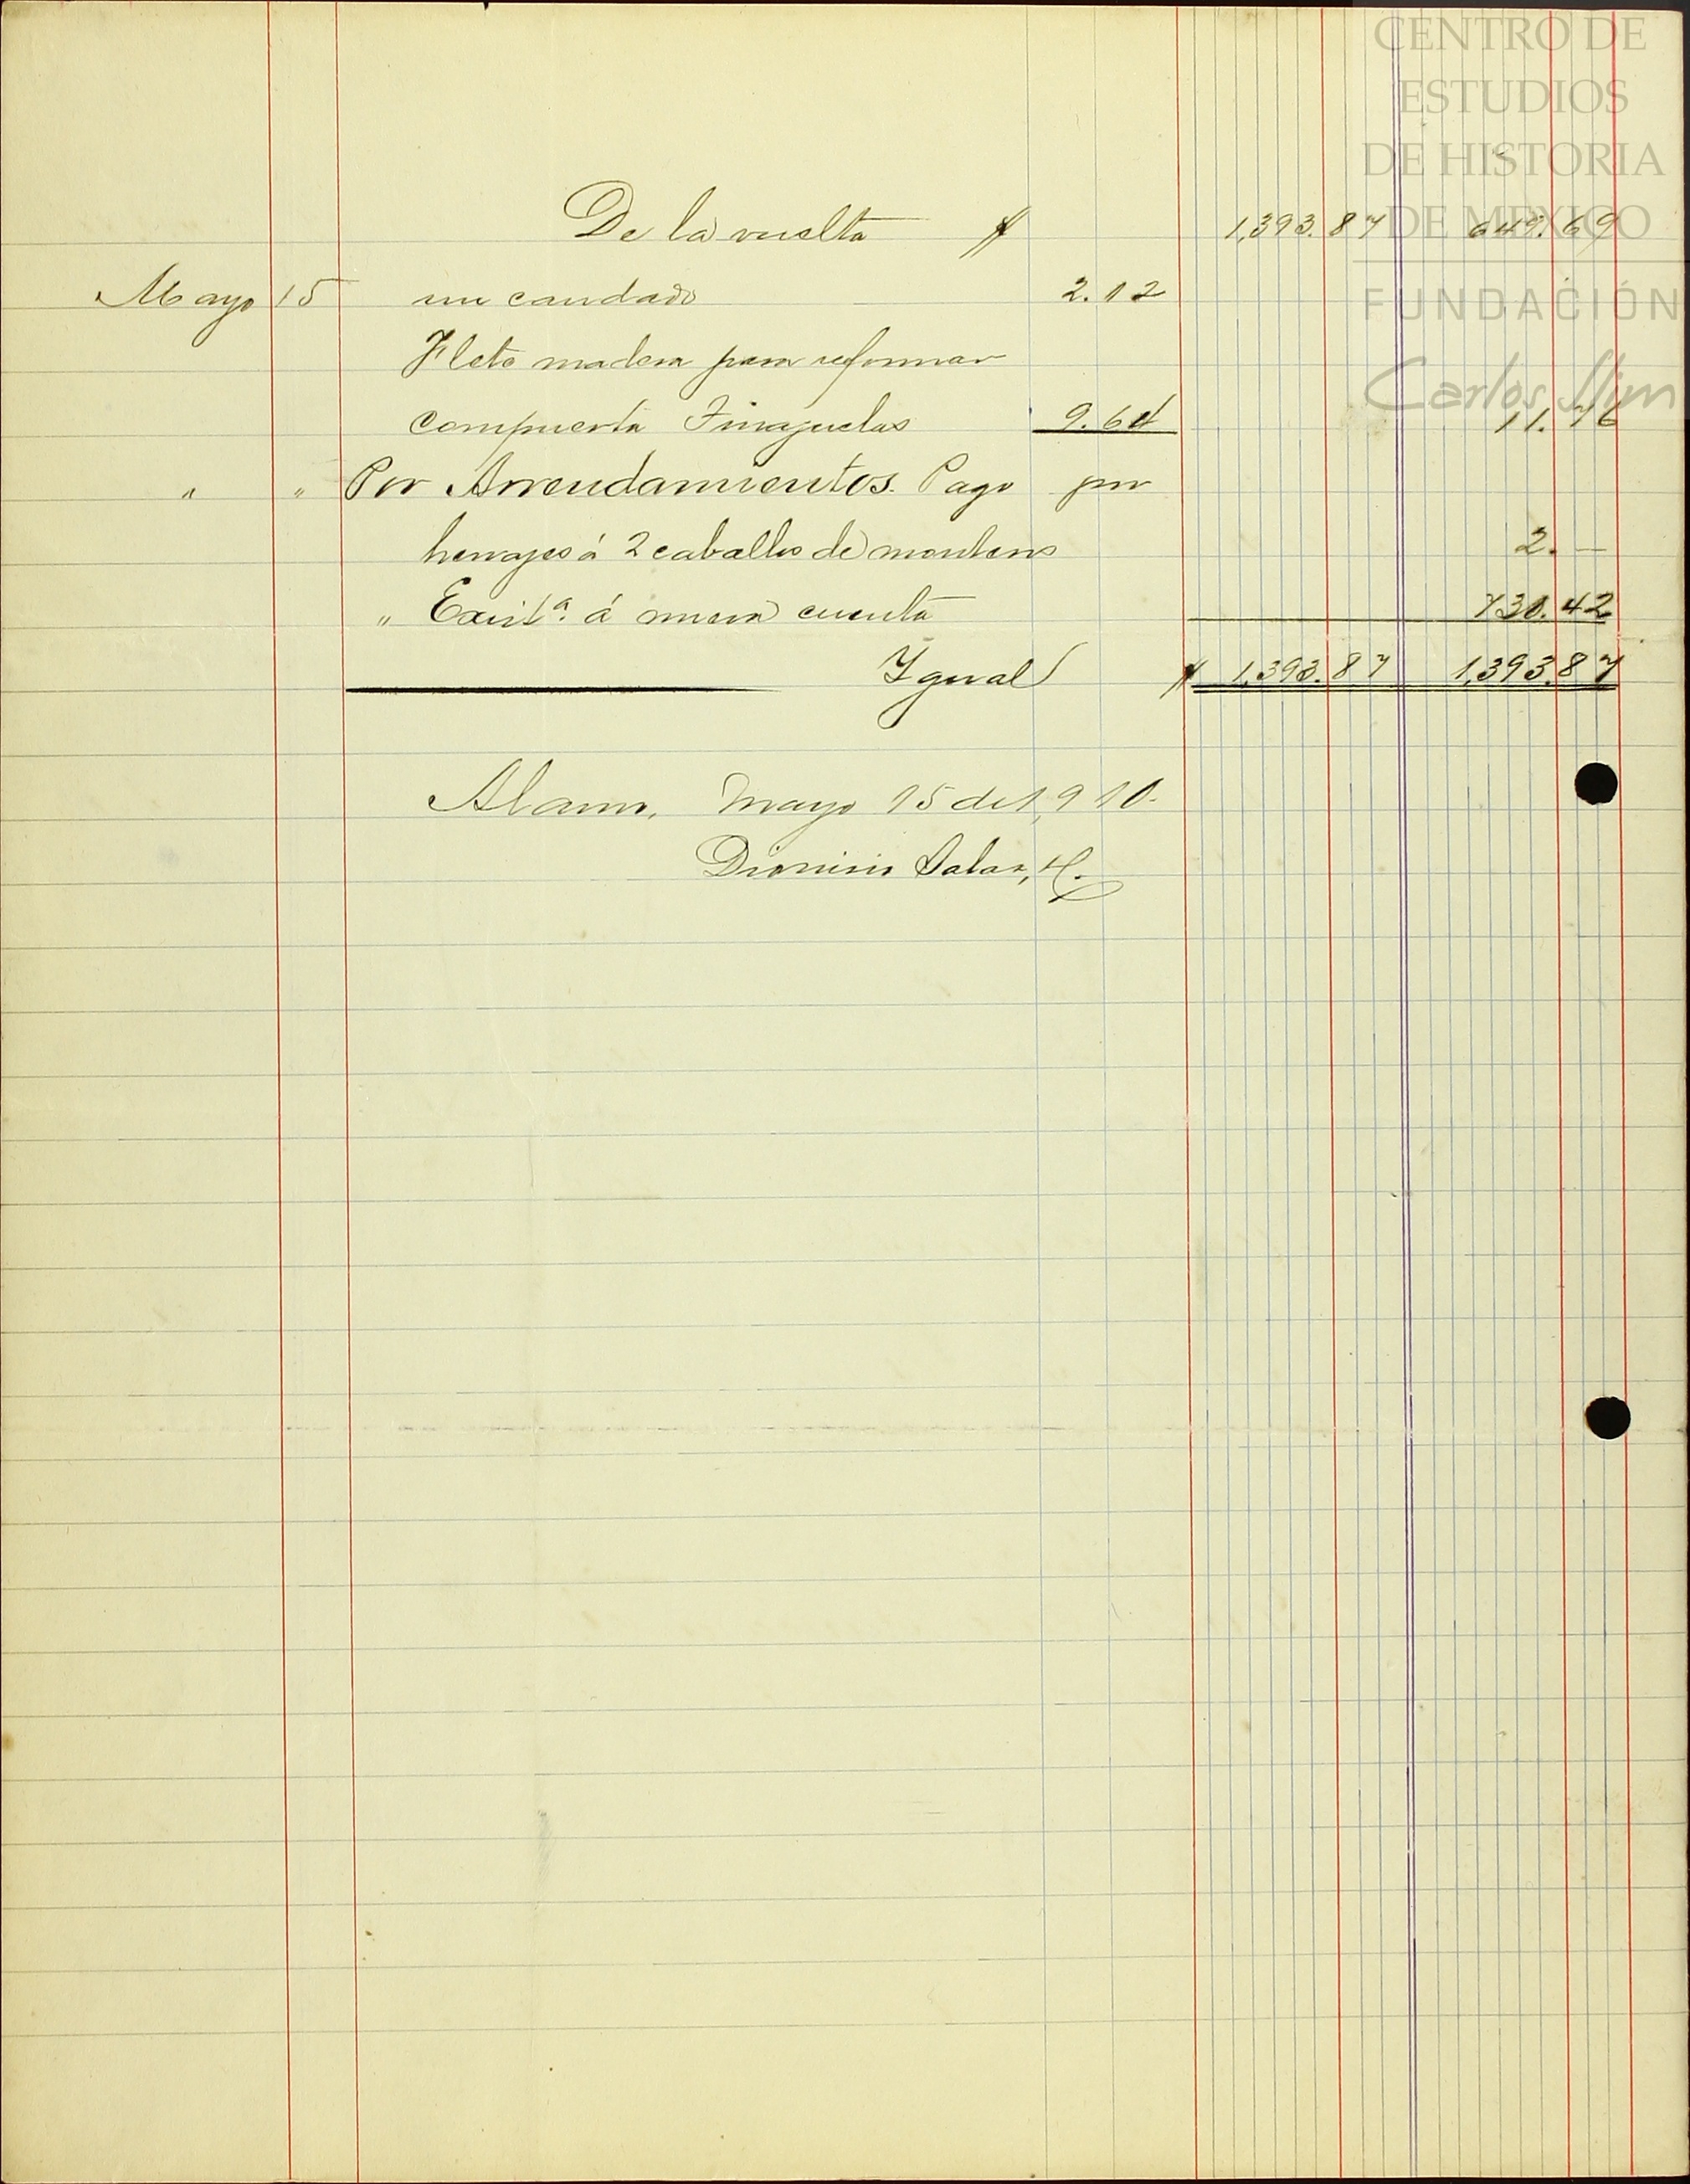 CENTRO DE
ESTUDIOS
DE HISTORIA
DE MEXICO
FUNDACIÓN
Carlos Slim
De la vuelta $ 1,393.87 649.69
Mayo 15 un candado 2.12
Flete madera para reformar
compuerta Tinajuelas 9.64 11.76
" " Por Arrendamientos. Pago por
herrajes á 2 caballos de monteros 2. —
" Exist.ª á nueva cuenta 730.42
Igual $ 1,393.87 1,393.87
Alamo, Mayo 15 de 1,910.
Dionisio Salas, H.